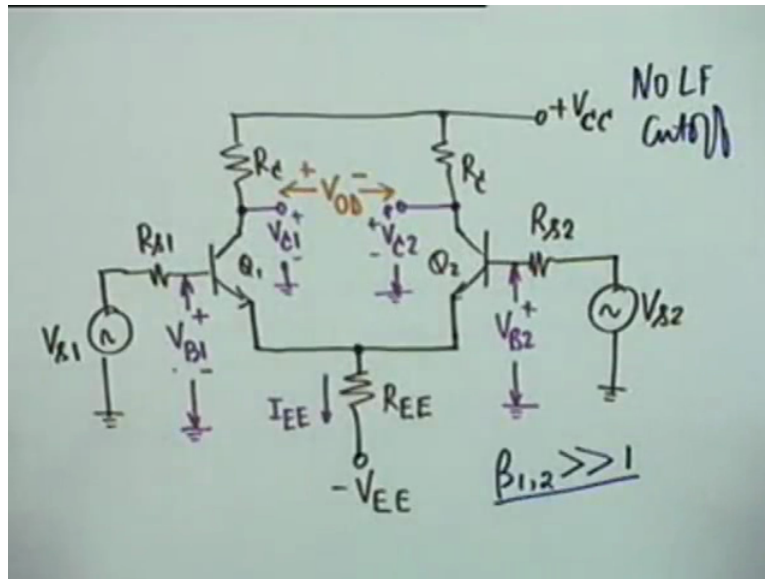 No LF
Cutoff
+VCC
RC
RC
+ VOD -
+
VC1
-
+
VC2
-
RS1
Q1
Q2
RS2
VS1
+
VB1
-
+
VB2
-
VS2
IEE
REE
-VEE
β1,2 >> 1